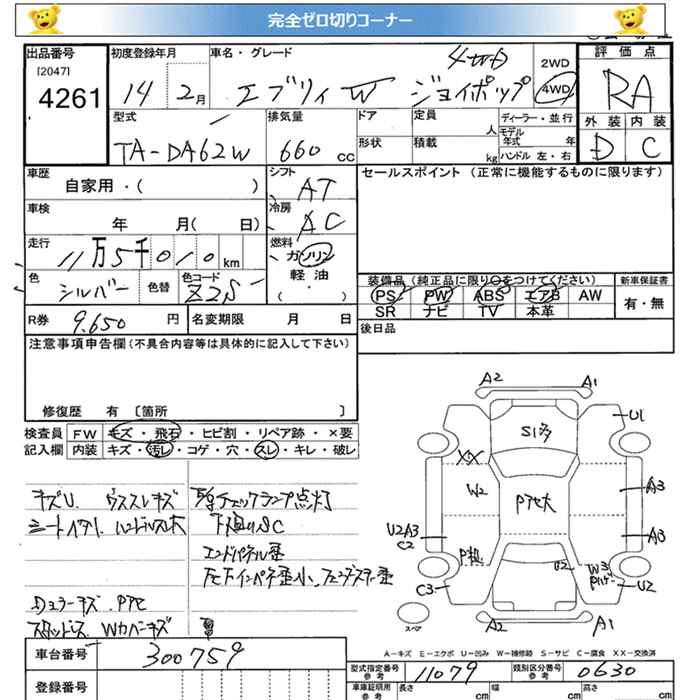 完全ゼロ切りコーナー
出品番号
[2047]
4261
初度登録年月
14 2月
車名・グレード
エブリィ W ジョイポップ
4WD
2WD
4WD
評価点
RA
外装 内装
D C
型式
TA-DA62W
排気量
660 cc
ドア
形状
定員
人
積載
kg
ディーラー・並行
モデル年式 年
ハンドル 左・右
車歴
自家用・( )
シフト
AT
セールスポイント (正常に機能するものに限ります)
車検
年 月( 日)
冷房
AC
走行
11万5千010km
燃料
ガソリン
軽油
( ・ )
色
シルバー
色替
色コード
Z2S
装備品(純正品に限り○をつけてください)
PS PW ABS エアB AW
SR ナビ TV 本革
新車保証書
有・無
R券
9.650 円
名変期限 月 日
後日品
注意事項申告欄(不具合内容等は具体的に記入して下さい)
修復歴 有 〔箇所 〕
検査員記入欄
FW キズ・飛石・ヒビ割・リペア跡・×要
内装 キズ・汚レ・コゲ・穴・スレ・キレ・破レ
キズU. ウススレキズ
チェックランプ点灯
下廻りSC
エンドパネル歪
スタッドレス Wカバーキズ
A2 A1
U1
S1多
XX
W2
Pアセ大
A3
A3
U2A3
C2
W3
U2
C3
A2
A1
スペア
A-キズ E-エクボ U-凹み W-補修跡 S-サビ C-腐食 XX-交換済
車台番号
300759
登録番号
型式指定番号
参考
11079
類別区分番号
参考
0630
車庫証明用
参考
長さ cm
幅 cm
高さ cm